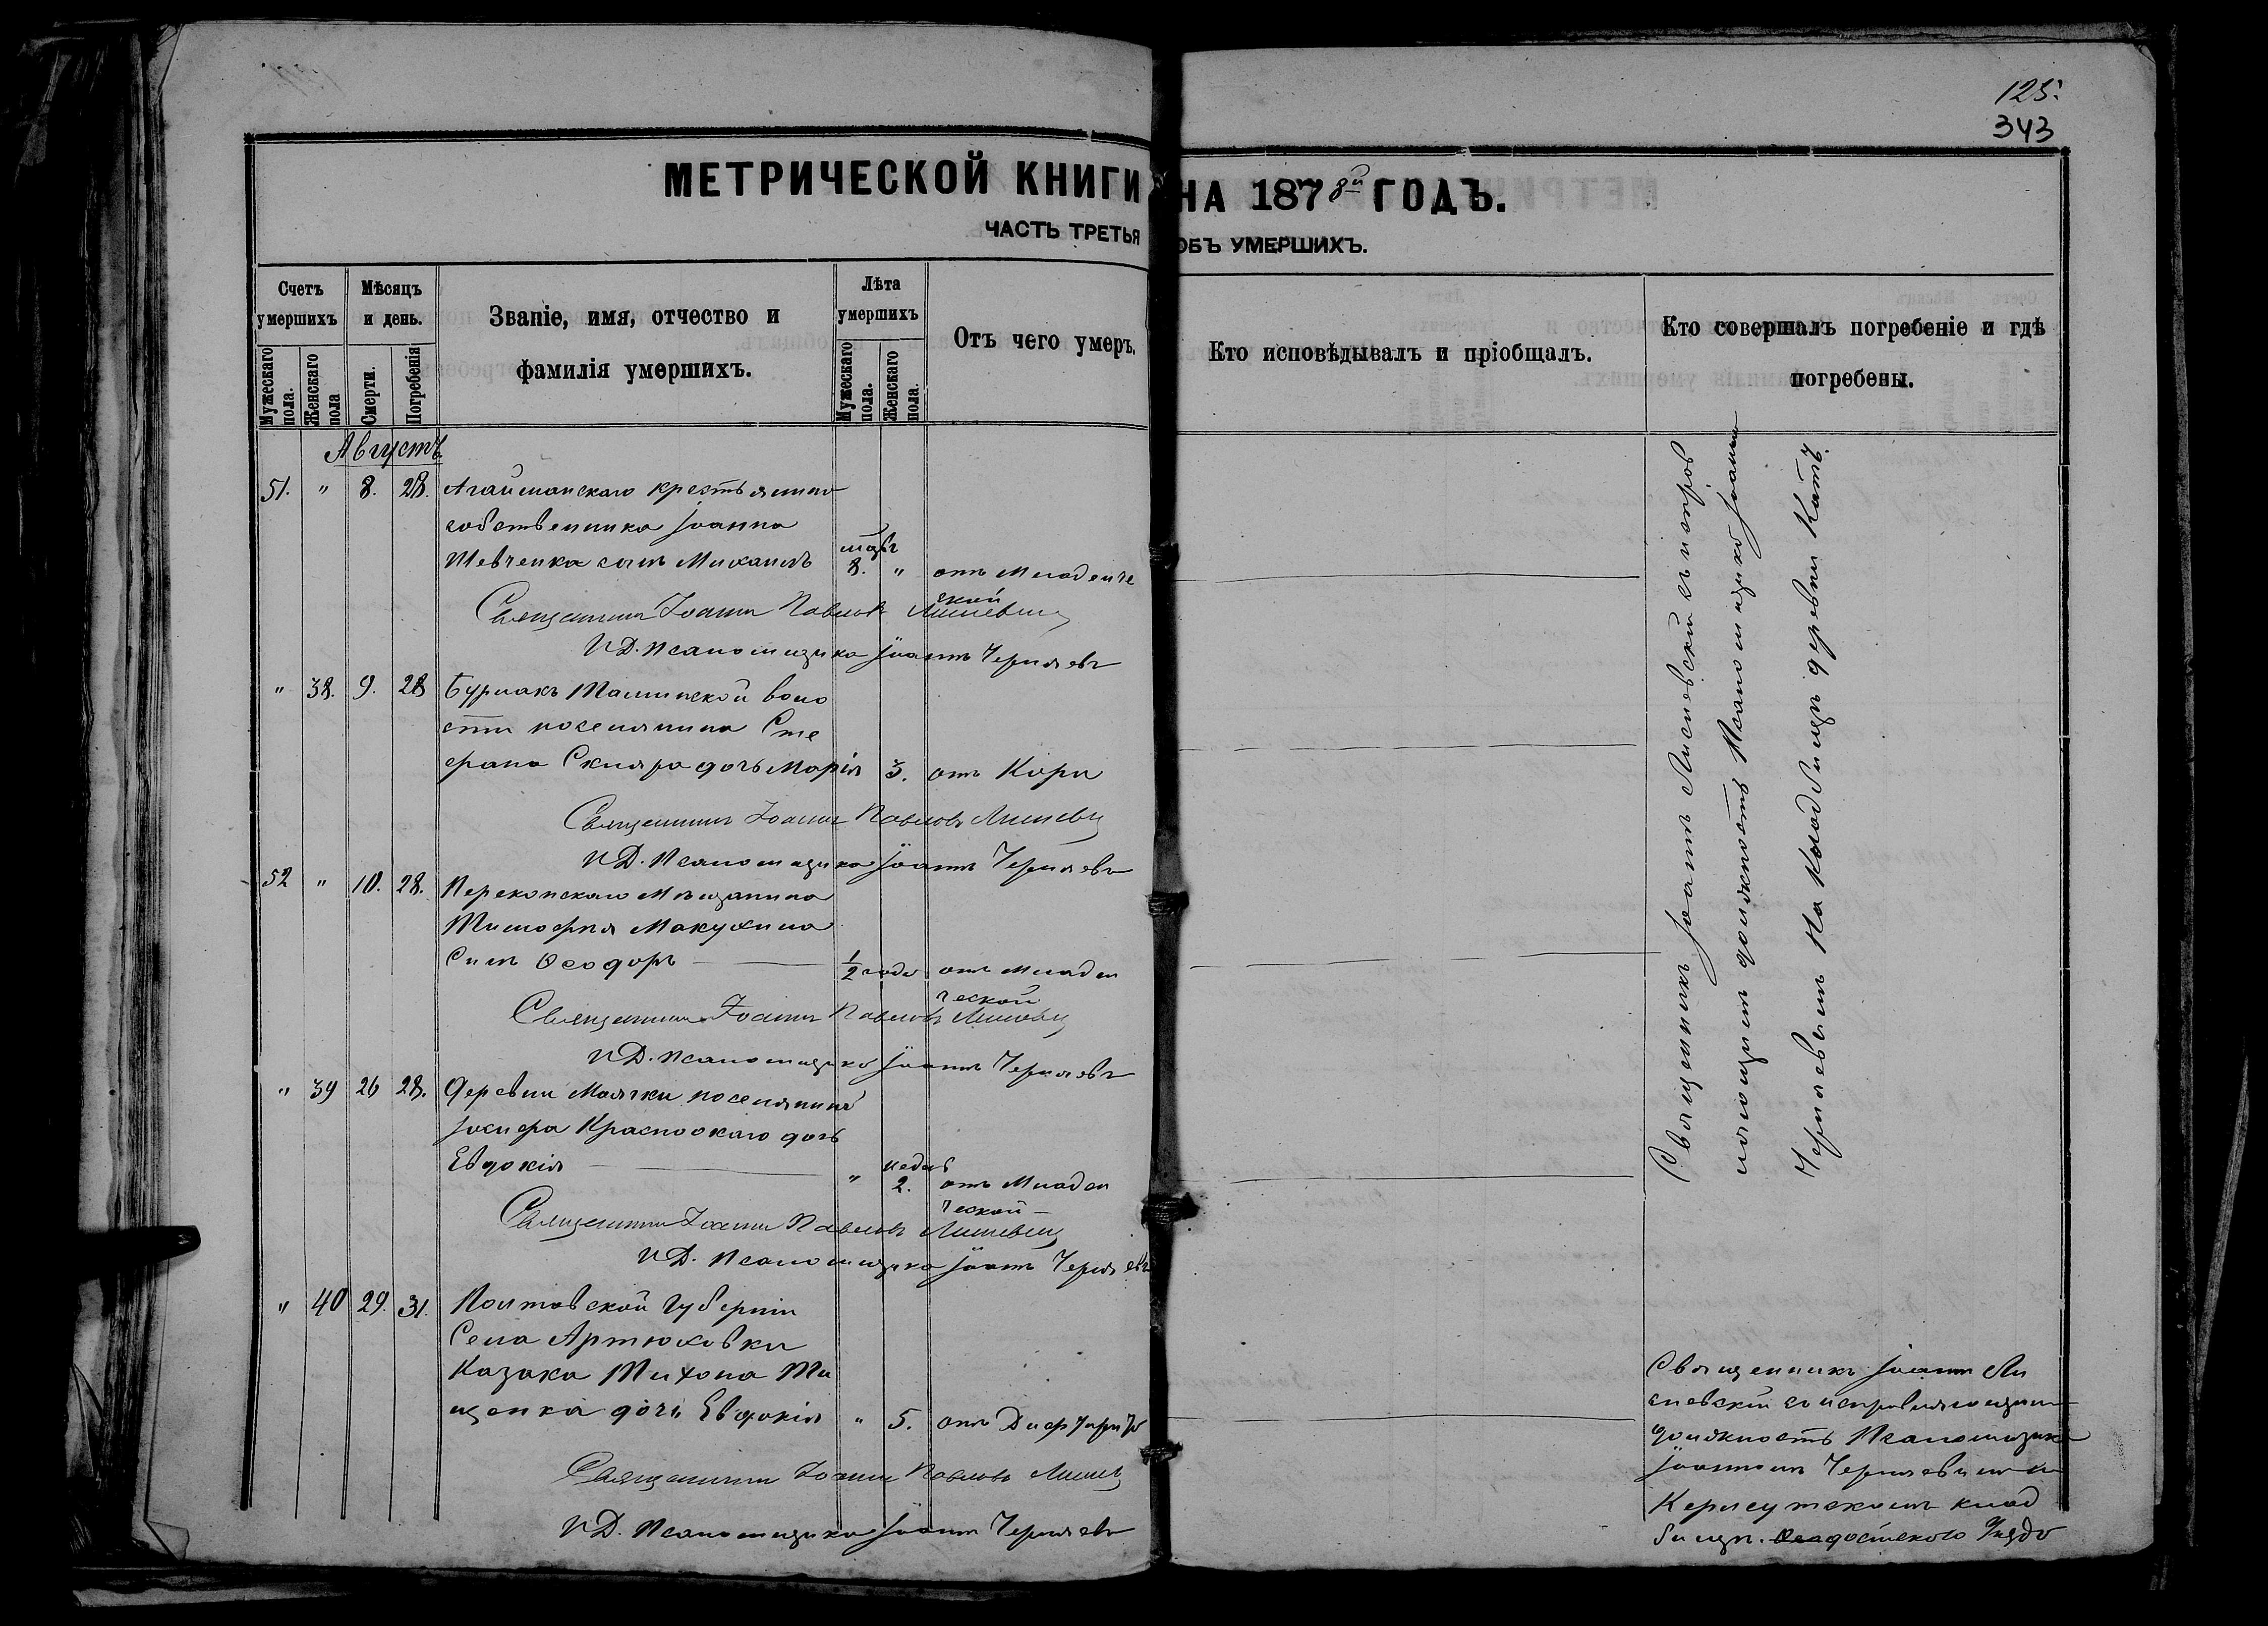 125.
343
МЕТРИЧЕСКОЙ КНИГИ НА 1878й ГОДЪ.
ЧАСТЬ ТРЕТЬЯ ОБЪ УМЕРШИХЪ.
Счетъ умершихъ
Мужескаго пола.
Женскаго пола
Мѣсяцъ и день.
Смерти.
Погребенія
Званіе, имя, отчество и
фамилія умершихъ.
Лѣта умершихъ
Мужескаго пола.
Женскаго пола.
Отъ чего умеръ.
Кто исповѣдывалъ и пріобщалъ.
Кто совершалъ погребеніе и гдѣ
погребены.
Августъ
51. " 8. 28. Агайманскаго крестьянина
собственника Іоанна
Шевченка сынъ Михаилъ 8. " отъ младенче
ской
Священникъ Іоаннъ Павловъ
И.Д. Псаломщика Іоаннъ Черняевъ
" 38. 9. 28 Ташинской воло
сти поселянина Сте
фана Скляра дочь Марія 3. отъ Кори
Священникъ Іоаннъ Павловъ
И.Д. Псаломщика Іоаннъ Черняевъ
52 " 10. 28. Перекопскаго Мѣщанина
Тимофея Макухина
Сынъ Ѳеодоръ 1/2 года отъ младен
ческой
Священникъ Іоаннъ Павловъ
И.Д. Псаломщика Іоаннъ Черняевъ
" 39 26 28. Деревни Маячки поселянина
Іосифа дочь
Евдокія " недѣль 2. отъ младен
ческой
Священникъ Іоаннъ Павловъ
И.Д. Псаломщика Іоаннъ Черняевъ
" 40 29. 31. Полтавской губерніи
Села Артюховки
Казака Тихона Ти
щенка дочь Евдокія " 5. отъ Дифтирита
Священникъ Іоаннъ Павловъ
И.Д. Псаломщика Іоаннъ Черняевъ
Священникъ Іоаннъ Лисневскій съ исправ
ляющимъ должность Псаломщика Іоанномъ
Черняевымъ на Кладбищѣ деревни
Священникъ Іоаннъ Ли
сневскій съ исправляющимъ
должность Псаломщика
Іоанномъ Черняевымъ на
клад
бищѣ. Ѳеодосійскаго Уѣзда